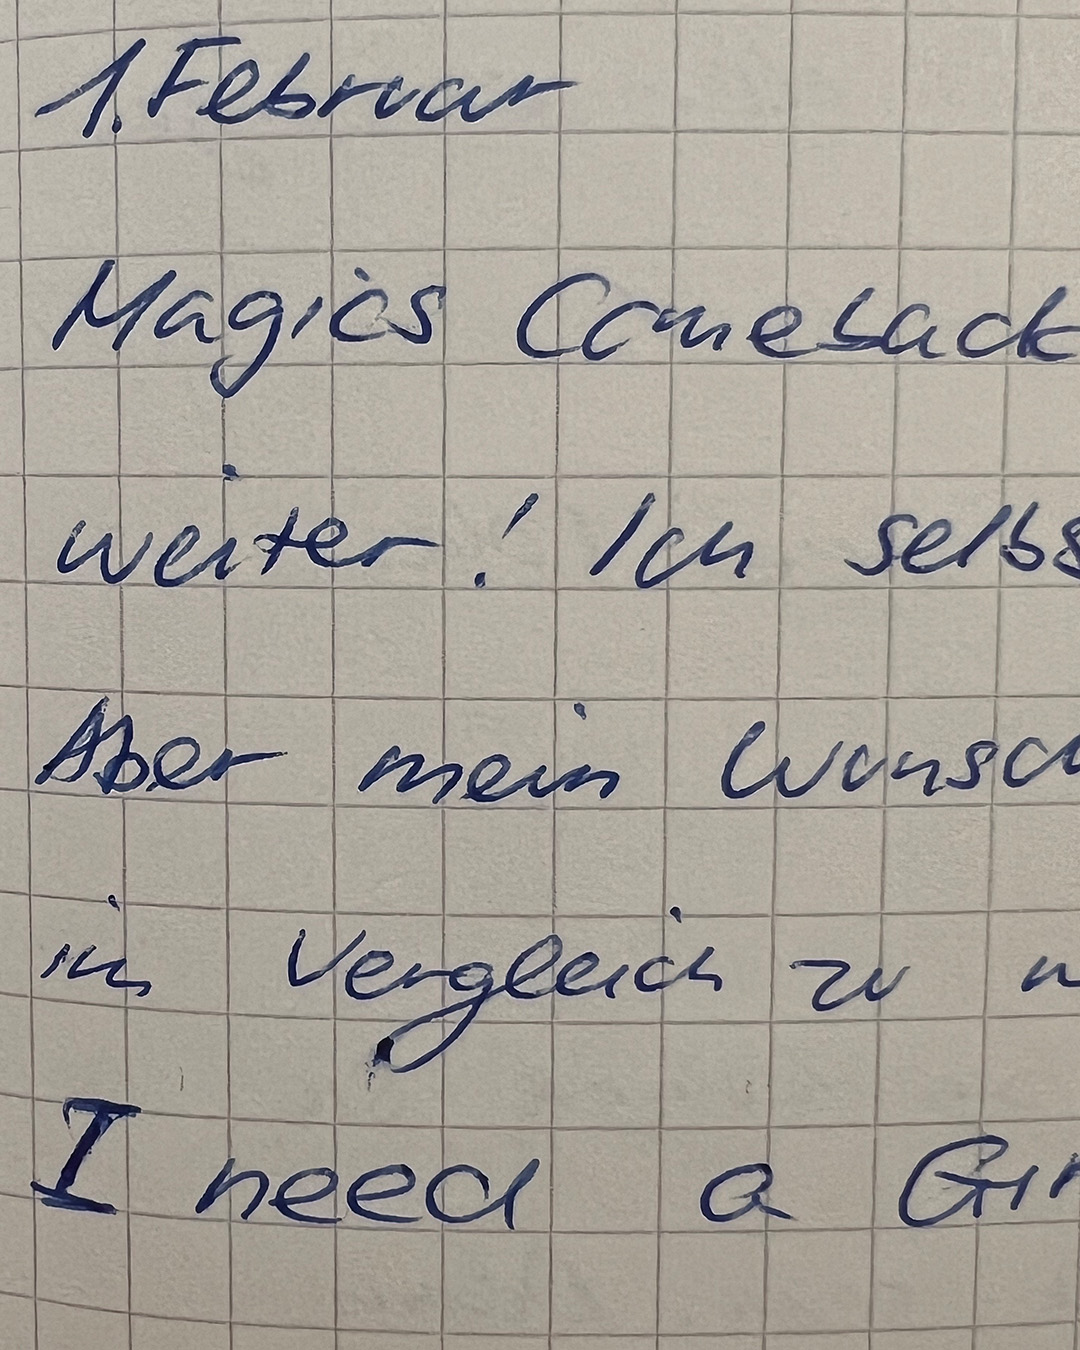 1. Februar
Magics Comeback
weiter! Ich selbs
Aber mein Wunsch
im Vergleich zu
I need a Gir